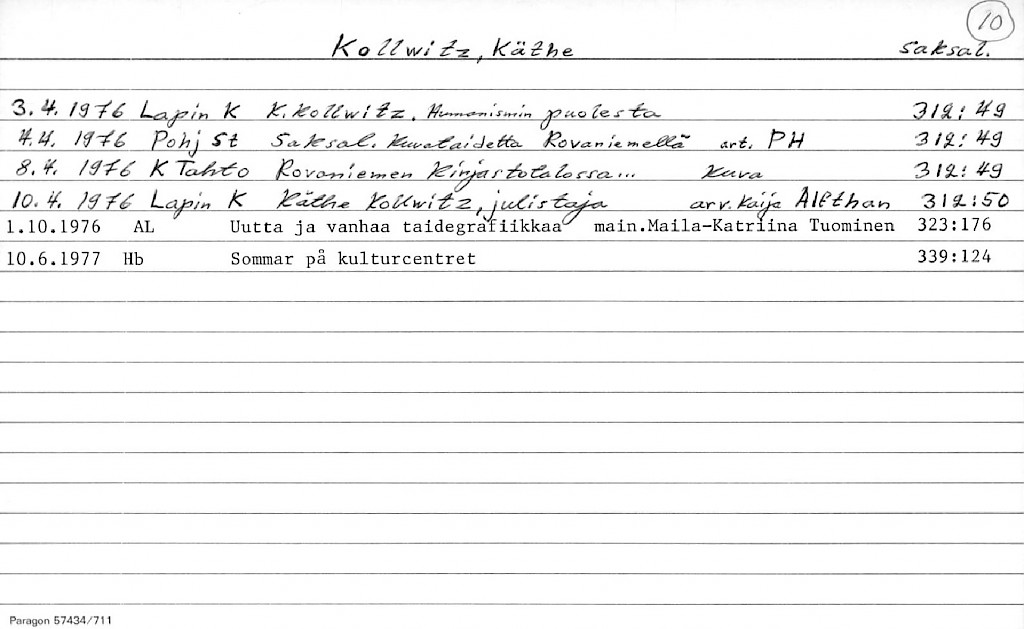 10
Kollwitz, Käthe saksal.
3.4.1976 Lapin K K.Kollwitz. Humanismin puolesta 312:49
4.4.1976 Pohj St Saksal. kuvataidetta Rovaniemellä art. PH 312:49
8.4.1976 K Tahto Rovaniemen kirjastotalossa... kuva 312:49
10.4.1976 Lapin K Käthe Kollwitz, julistaja arv. Kaija Alethan 312:50
1.10.1976 AL Uutta ja vanhaa taidegrafiikkaa main.Maila-Katriina Tuominen 323:176
10.6.1977 Hb Sommar på kulturcentret 339:124
Paragon 57434/711